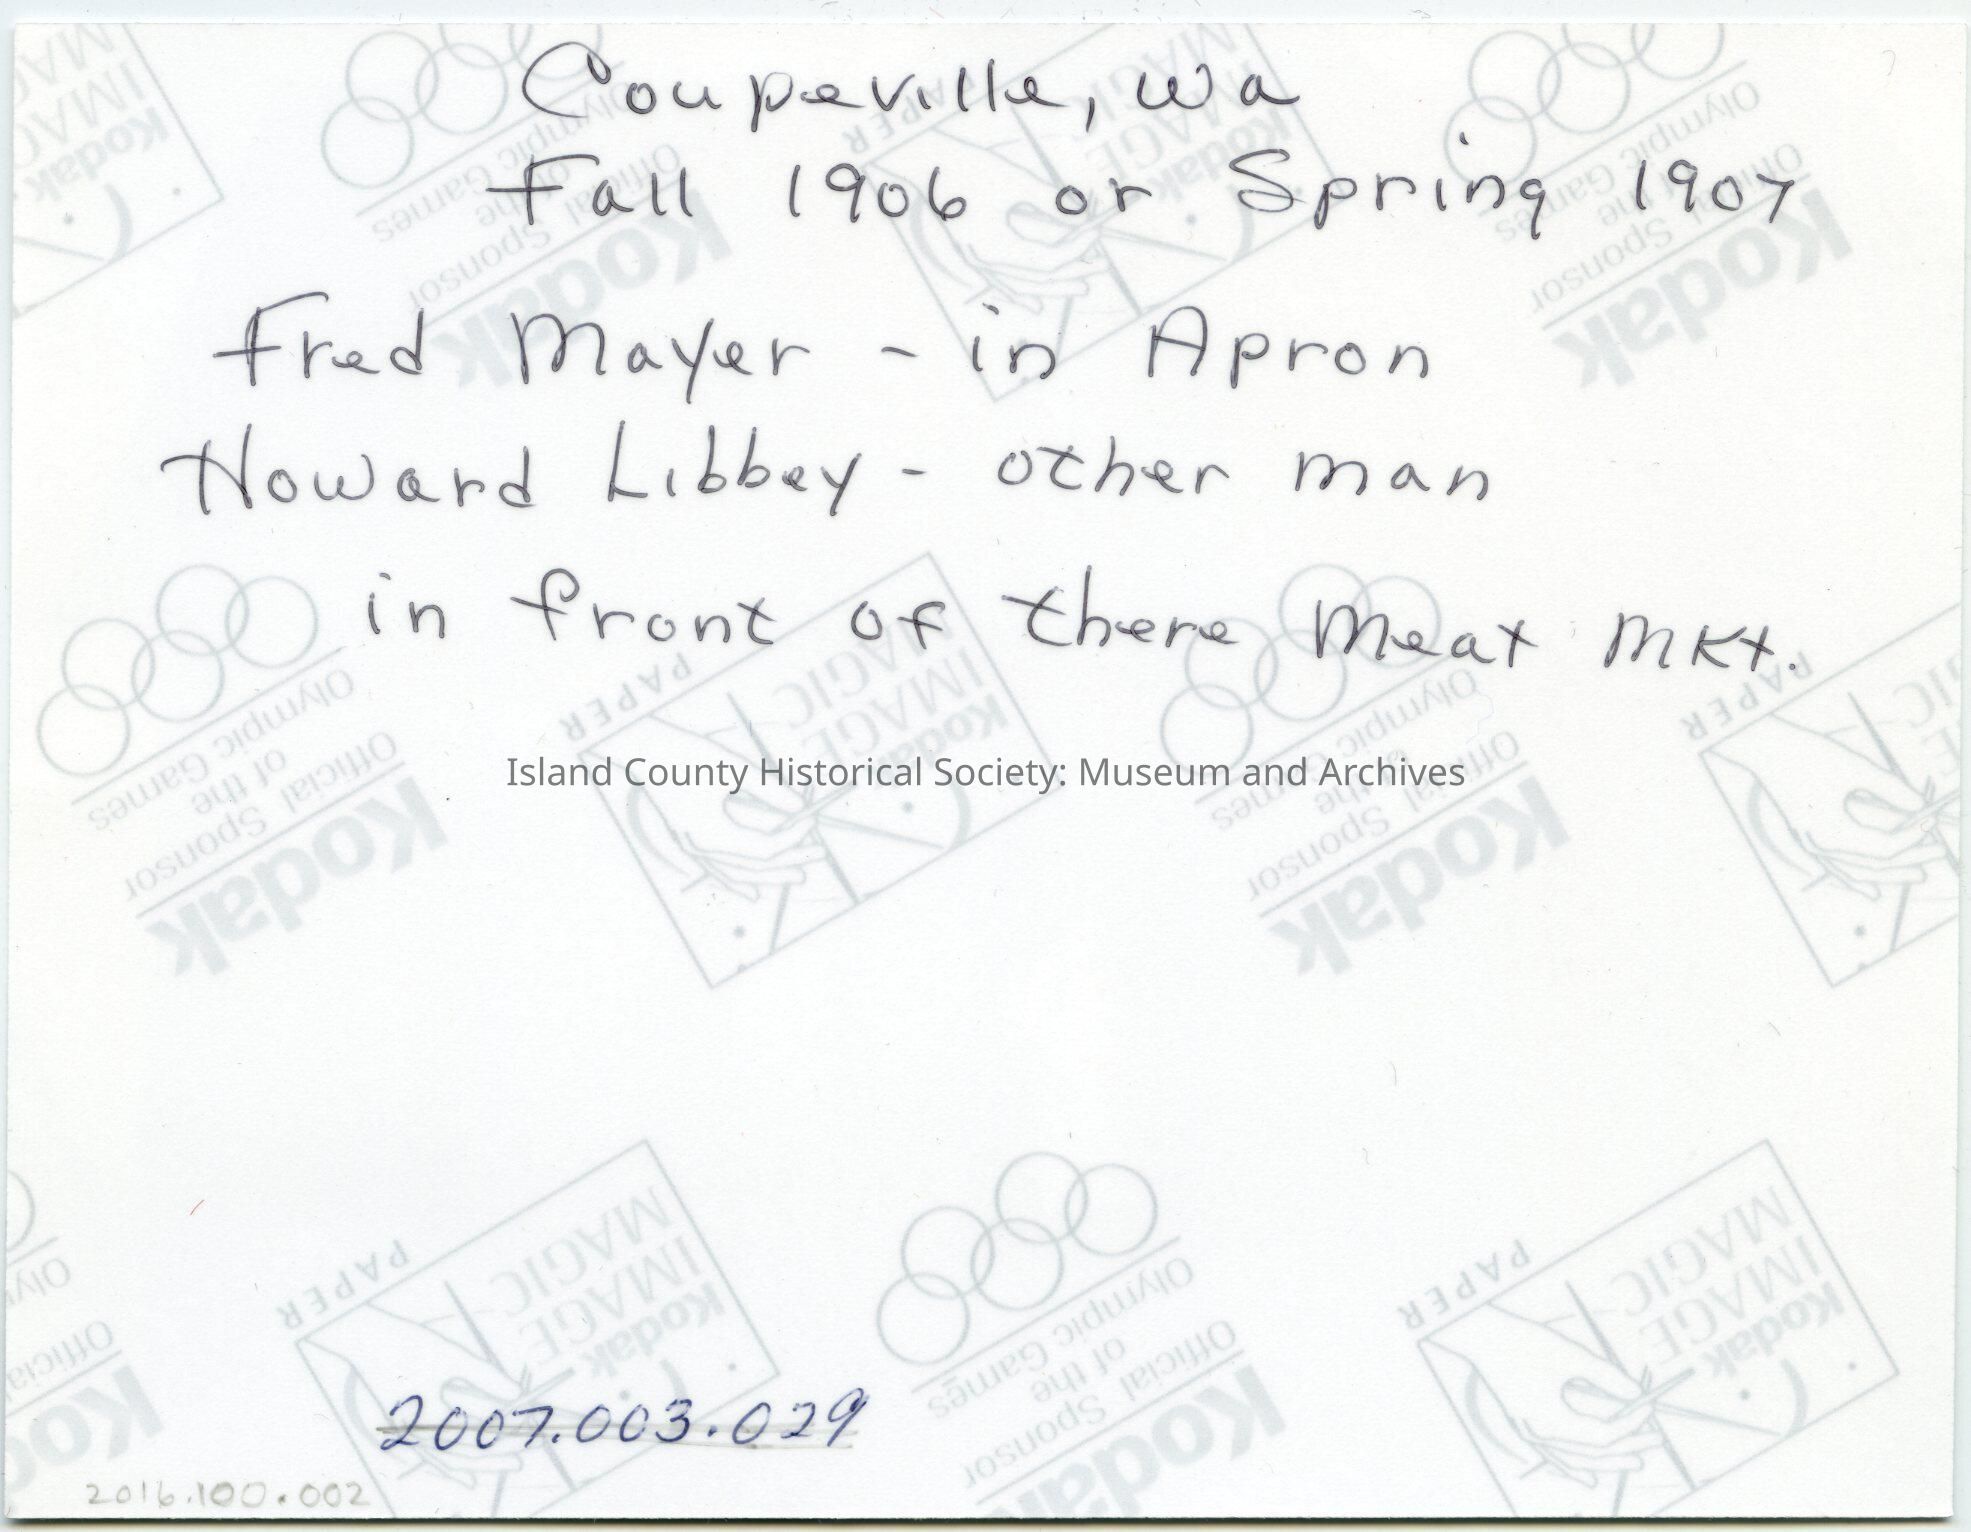 Coupeville, Wa
Fall 1906 or Spring 1907
Fred Mayer - in Apron
Howard Libbey - other man
in front of there Meat Mkt.
Island County Historical Society: Museum and Archives
2007.003.029
2016.100.002
Kodak
Official Sponsor
of the
Olympic Games
Kodak
IMAGE
MAGIC
PAPER